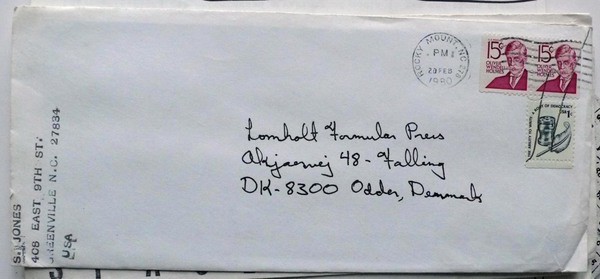 S. JONES
408 EAST 9TH ST.
GREENVILLE N.C. 27834
USA
ROCKY MOUNT, NC
PM
20 FEB
1980
15c
OLIVER
WENDELL
HOLMES
15c
OLIVER
WENDELL
HOLMES
OF DEMOCRACY
Lomholt Formular Press
Akjaervej 48 - Falling
DK-8300 Odder, Denmark